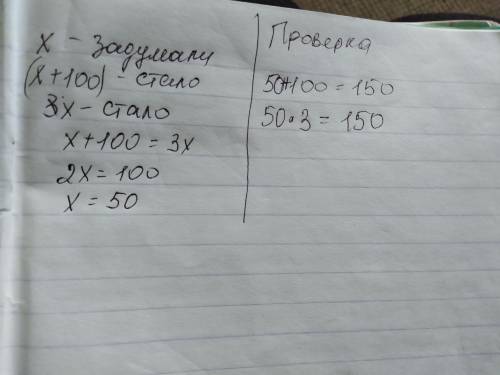 x - задумали
(x+100) - стало
3x - стало
x+100 = 3x
2x = 100
x = 50
Проверка
50+100 = 150
50•3 = 150